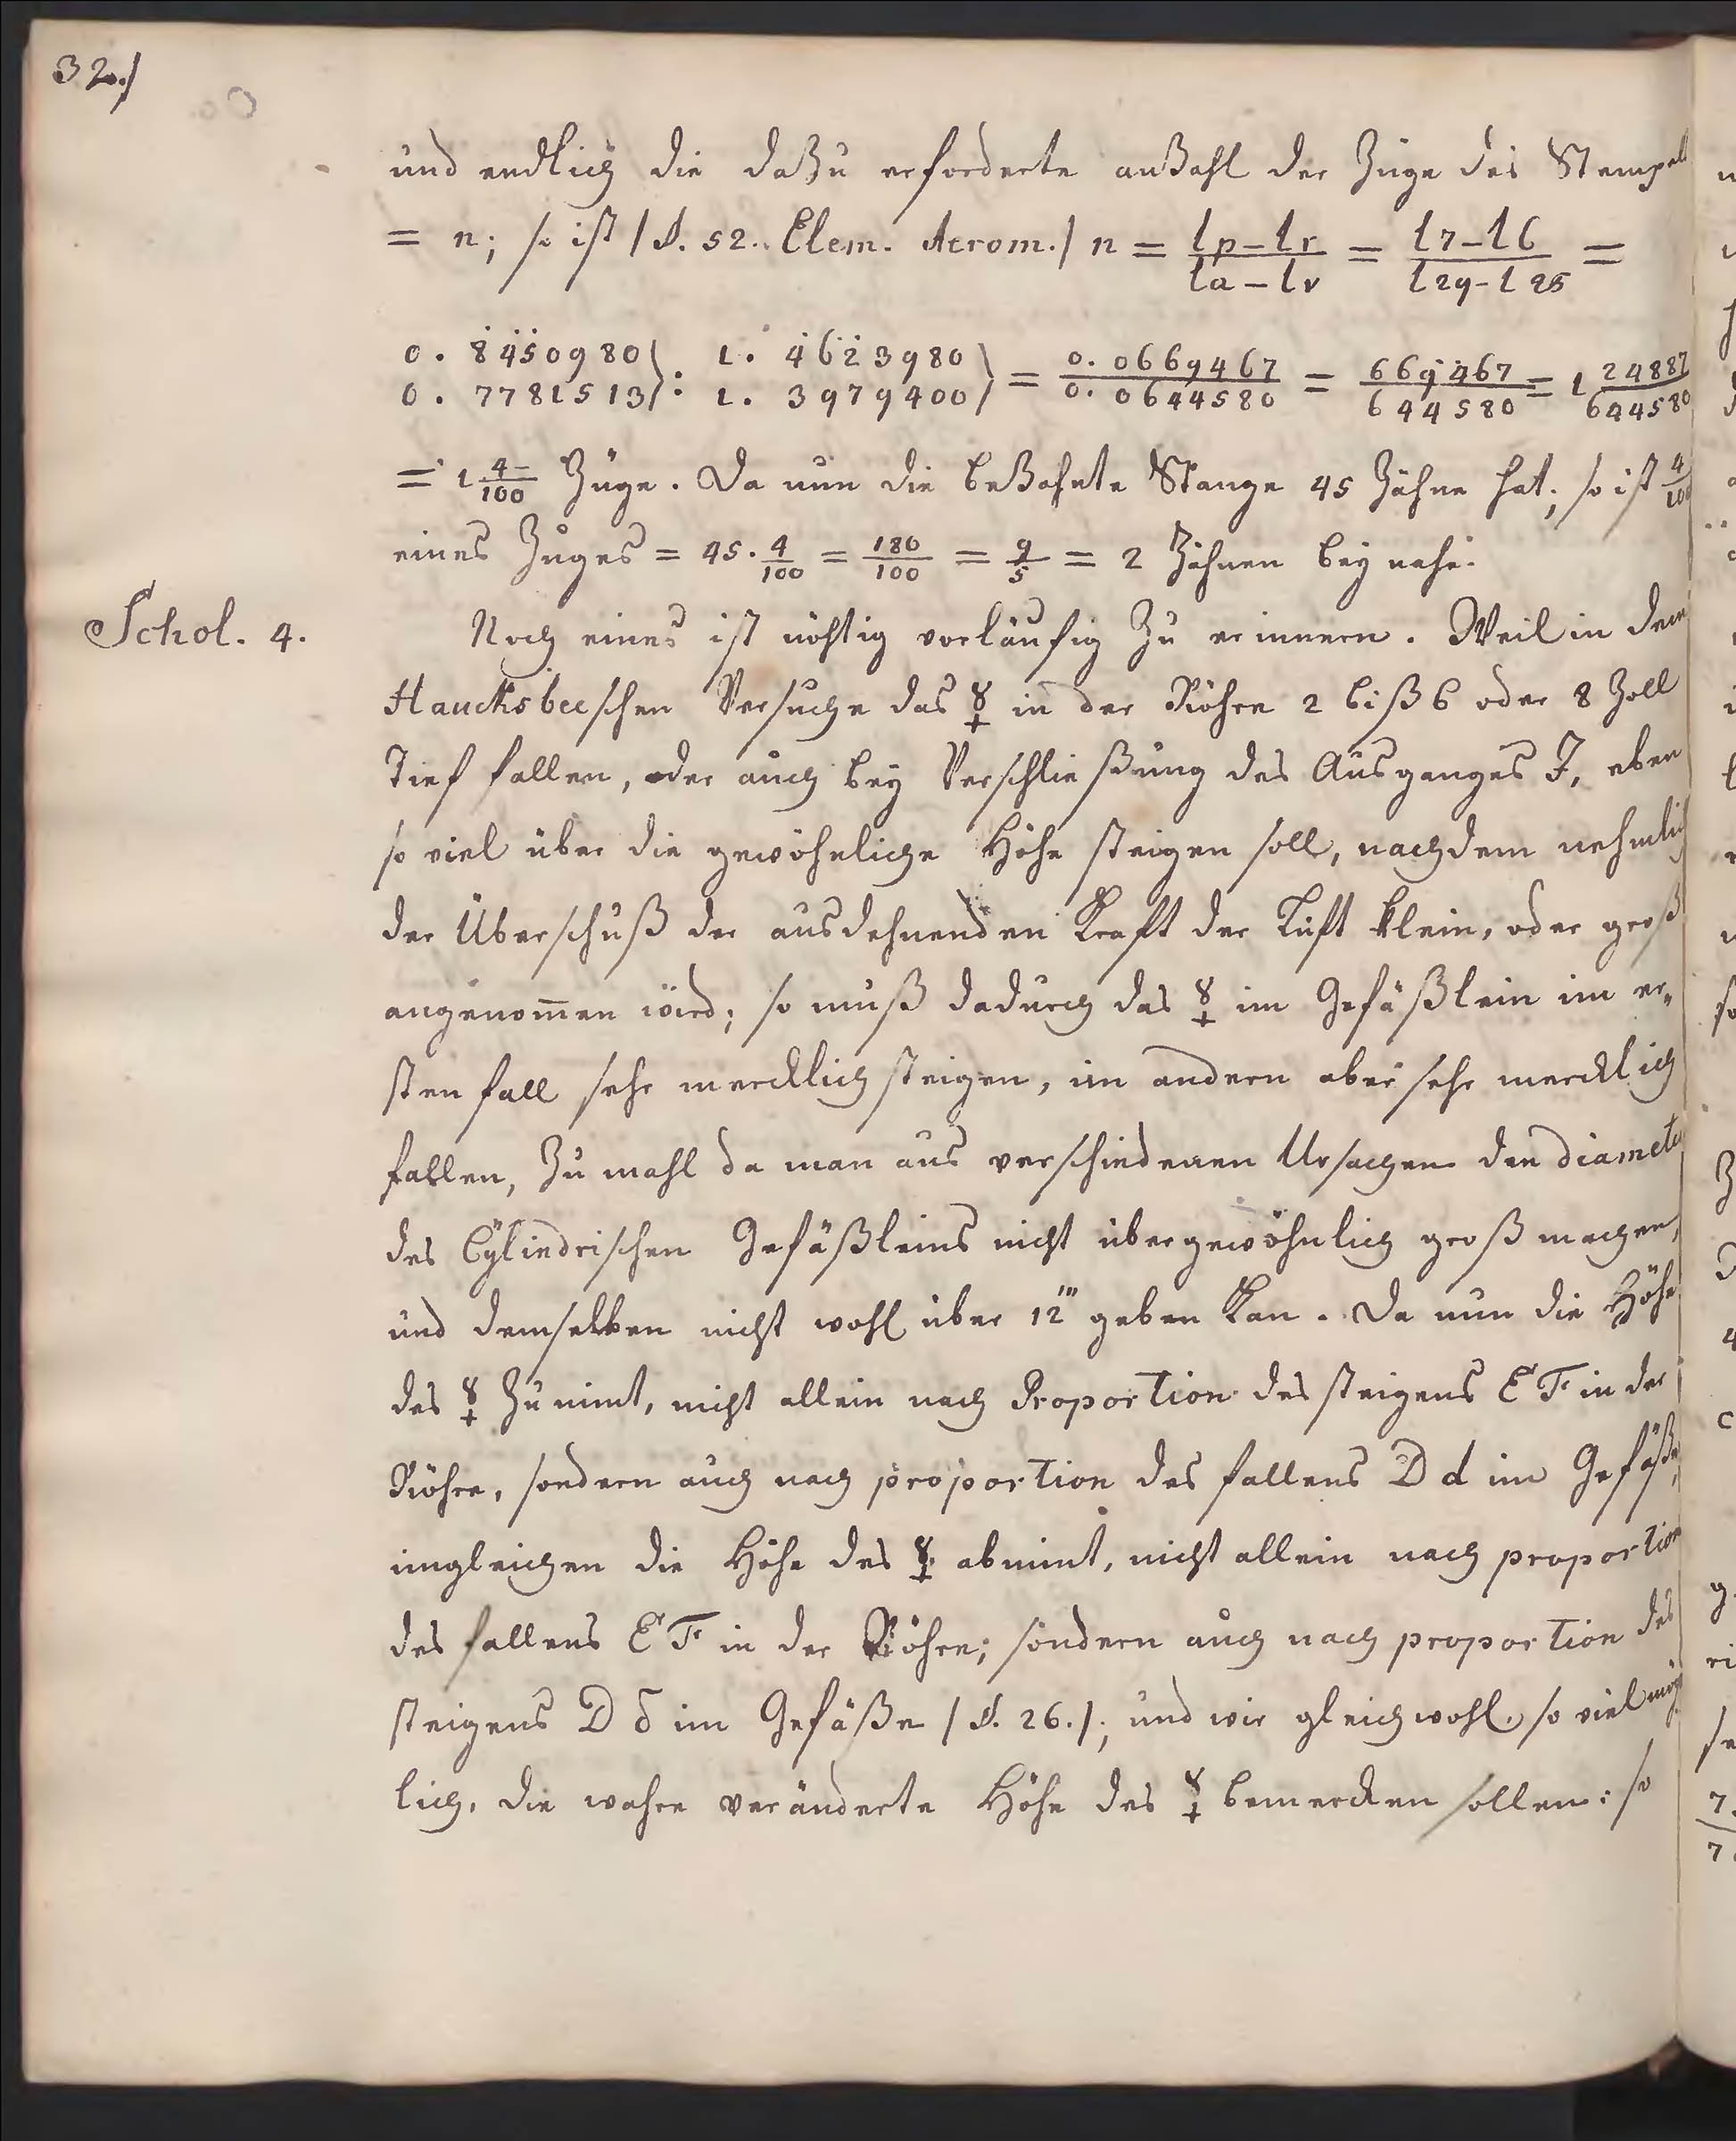 32./
und endlich die daßu erforderte anßahl der Züge des Stempels
= n; so ist /§. 52. Elem. Aerom./ n = (lp–lr)/(la–lv) = (l7–l6)/(l29–l25) =
0. 8450980 ) : 1. 4623980 ) = 0.0669467/0.0644580 = 669467/644580 = 1 24887/644580
0. 7781513 ) 1. 3979400 )
= 1 4/100 Züge. Da nun die beßahnte Stange 45 Zähne hat; so ist 4/100
eines Zuges = 45. 4/100 = 180/100 = 9/5 = 2 Zähnen bey nahe.
Schol. 4.
Noch eines ist nöhtig vorläufig zu erinnern. Weil in dem
Haucksbeeschen Versuche das ☿ in der Röhre 2 biß 6 oder 8 Zoll
Tief fallen, oder auch bey Verschließung des Ausganges J, eben
so viel über die gewöhnliche Höhe steigen soll, nachdem nehmlich
der Überschuß der ausdehnenden Kraft der Luft klein, oder groß
angenom̅en wird; so muß dadurch das ☿ im Gefäßlein im er„
sten fall sehr mercklich steigen, im andern aber sehr mercklich
fallen, Zu mahl da man aus verschiedenen Ursachen den diameter
des Cÿlindrischen Gefäßleins nicht übergewöhnlich groß machen,
und demselben nicht wohl über 12''' geben kan. Da nun die Höhe
des ☿ Zunimt, nicht allein nach Proportion des steigens EF in der
Röhre, sondern auch nach proportion des fallens D d im Gefäße,
imgleichen die Höhe des ☿ abnimt, nicht allein nach proportion
des fallens EF in der Röhre; sondern auch nach proportion des
steigens D δ im Gefäße /§. 26./; und wir gleichwohl, so viel mög
lich, die wahre veränderte Höhe des ☿ bemercken sollen: so